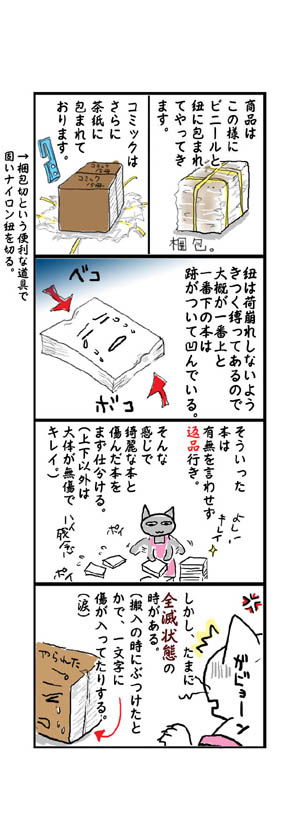 商品は
この様に
ビニールと
紐に包まれ
てやってき
ます。
梱包。
コミックは
さらに
茶紙に
包まれて
おります。
コミック
コミック
→梱包切という便利な道具で
固いナイロン紐を切る。
紐は荷崩れしないよう
きつく縛ってあるので
大概が一番上と
一番下の本は
跡がついて凹んでいる。
ベコ
ボコ
そういった
本は
有無を言わせず
返品行き。
そんな
感じで
綺麗な本と
傷んだ本を
まず仕分ける。
(上下以外は
大体が無傷で
キレイ。)
よし、
キレイ
ポイ
ポイ
しかし たまに
全滅状態の
時がある。
(搬入の時にぶつけたと
かで、一文字に
傷が入ってたりする。
(涙)
がびょーン
やられた